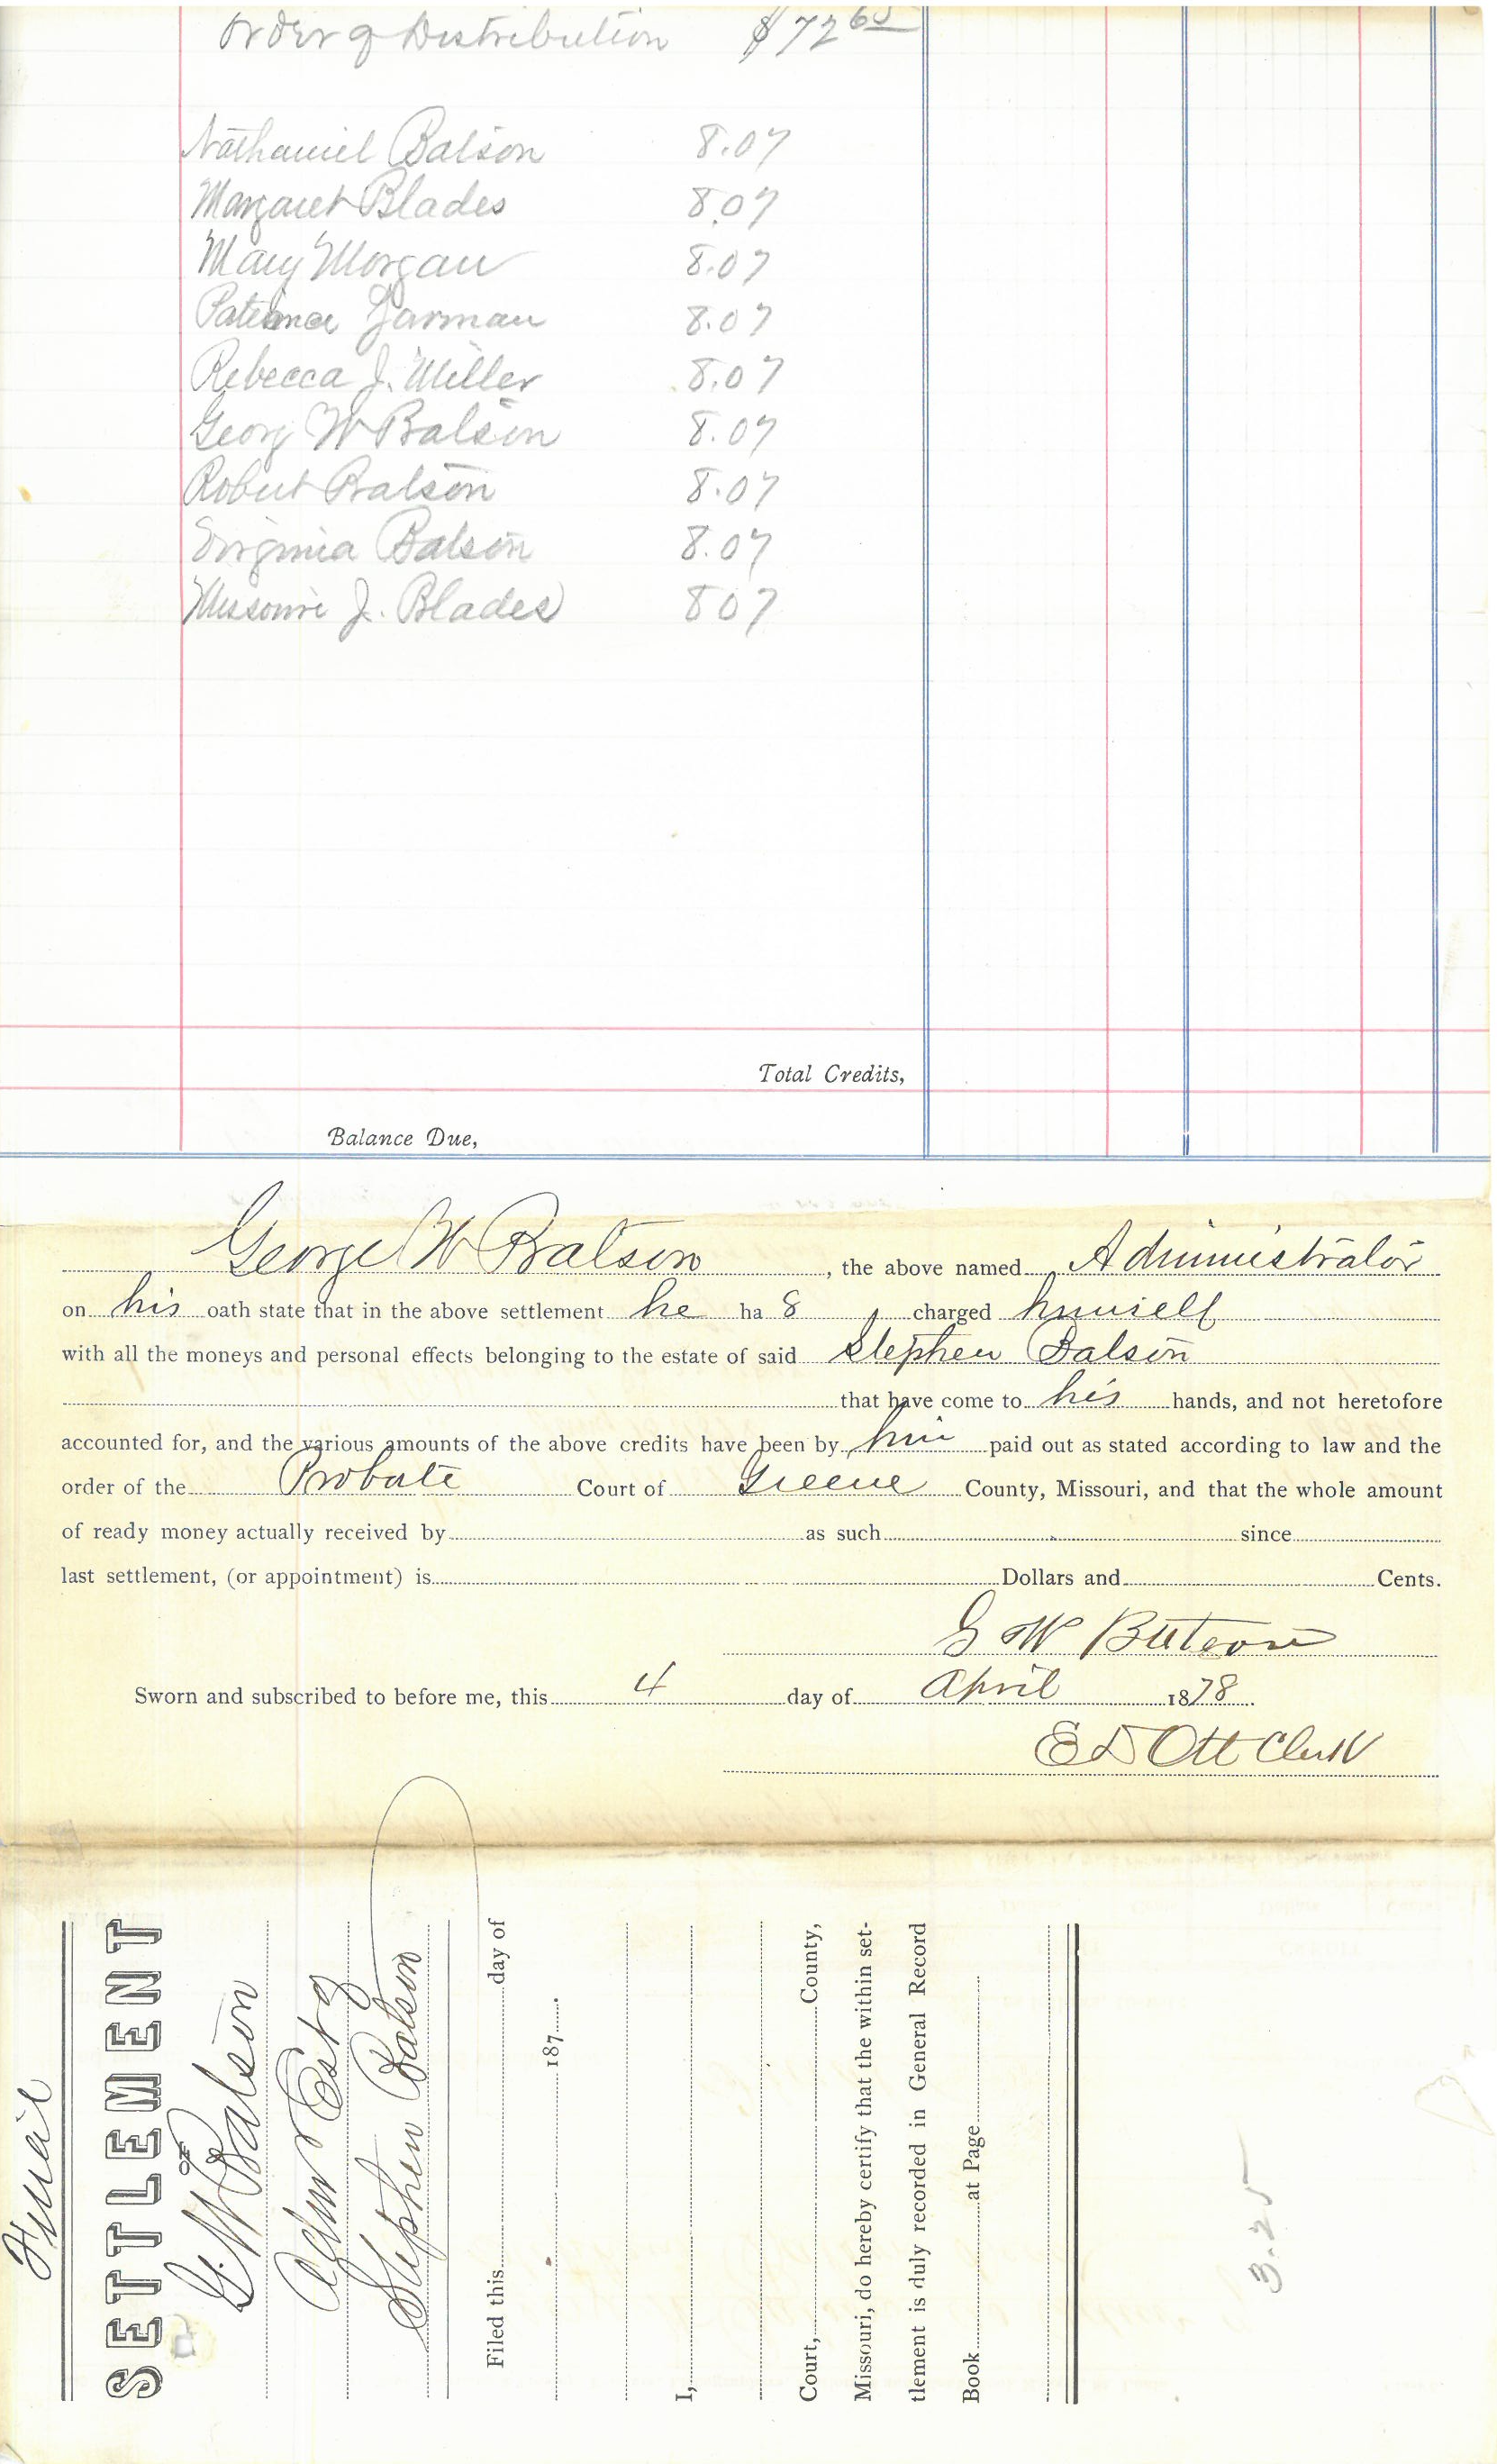 Order of Distribution $72 65
Nathaniel Batson 8.07
Margaret Blades 8.07
Mary Morgan 8.07
Patience Jarman 8.07
Rebecca J. Miller 8.07
Georg W Batson 8.07
Robert Batson 8.07
Virginia Batson 8.07
Missouri J. Blades 807
Total Credits,
Balance Due,
George W Batson , the above named Administrator
on his oath state that in the above settlement he ha s charged himself
with all the moneys and personal effects belonging to the estate of said Stephen Batson
that have come to his hands, and not heretofore
accounted for, and the various amounts of the above credits have been by him paid out as stated according to law and the
order of the Probate Court of Greene County, Missouri, and that the whole amount
of ready money actually received by as such since
last settlement, (or appointment) is Dollars and Cents.
G W Batson
Sworn and subscribed to before me, this 4 day of April 1878
E D Ott Clerk
Final
SETTLEMENT
OF
G. W. Batson
Admr Est of
Stephen Batson
Filed this day of
187 .
I,
Court, County,
Missouri, do hereby certify that the within set-
tlement is duly recorded in General Record
Book at Page
3.25